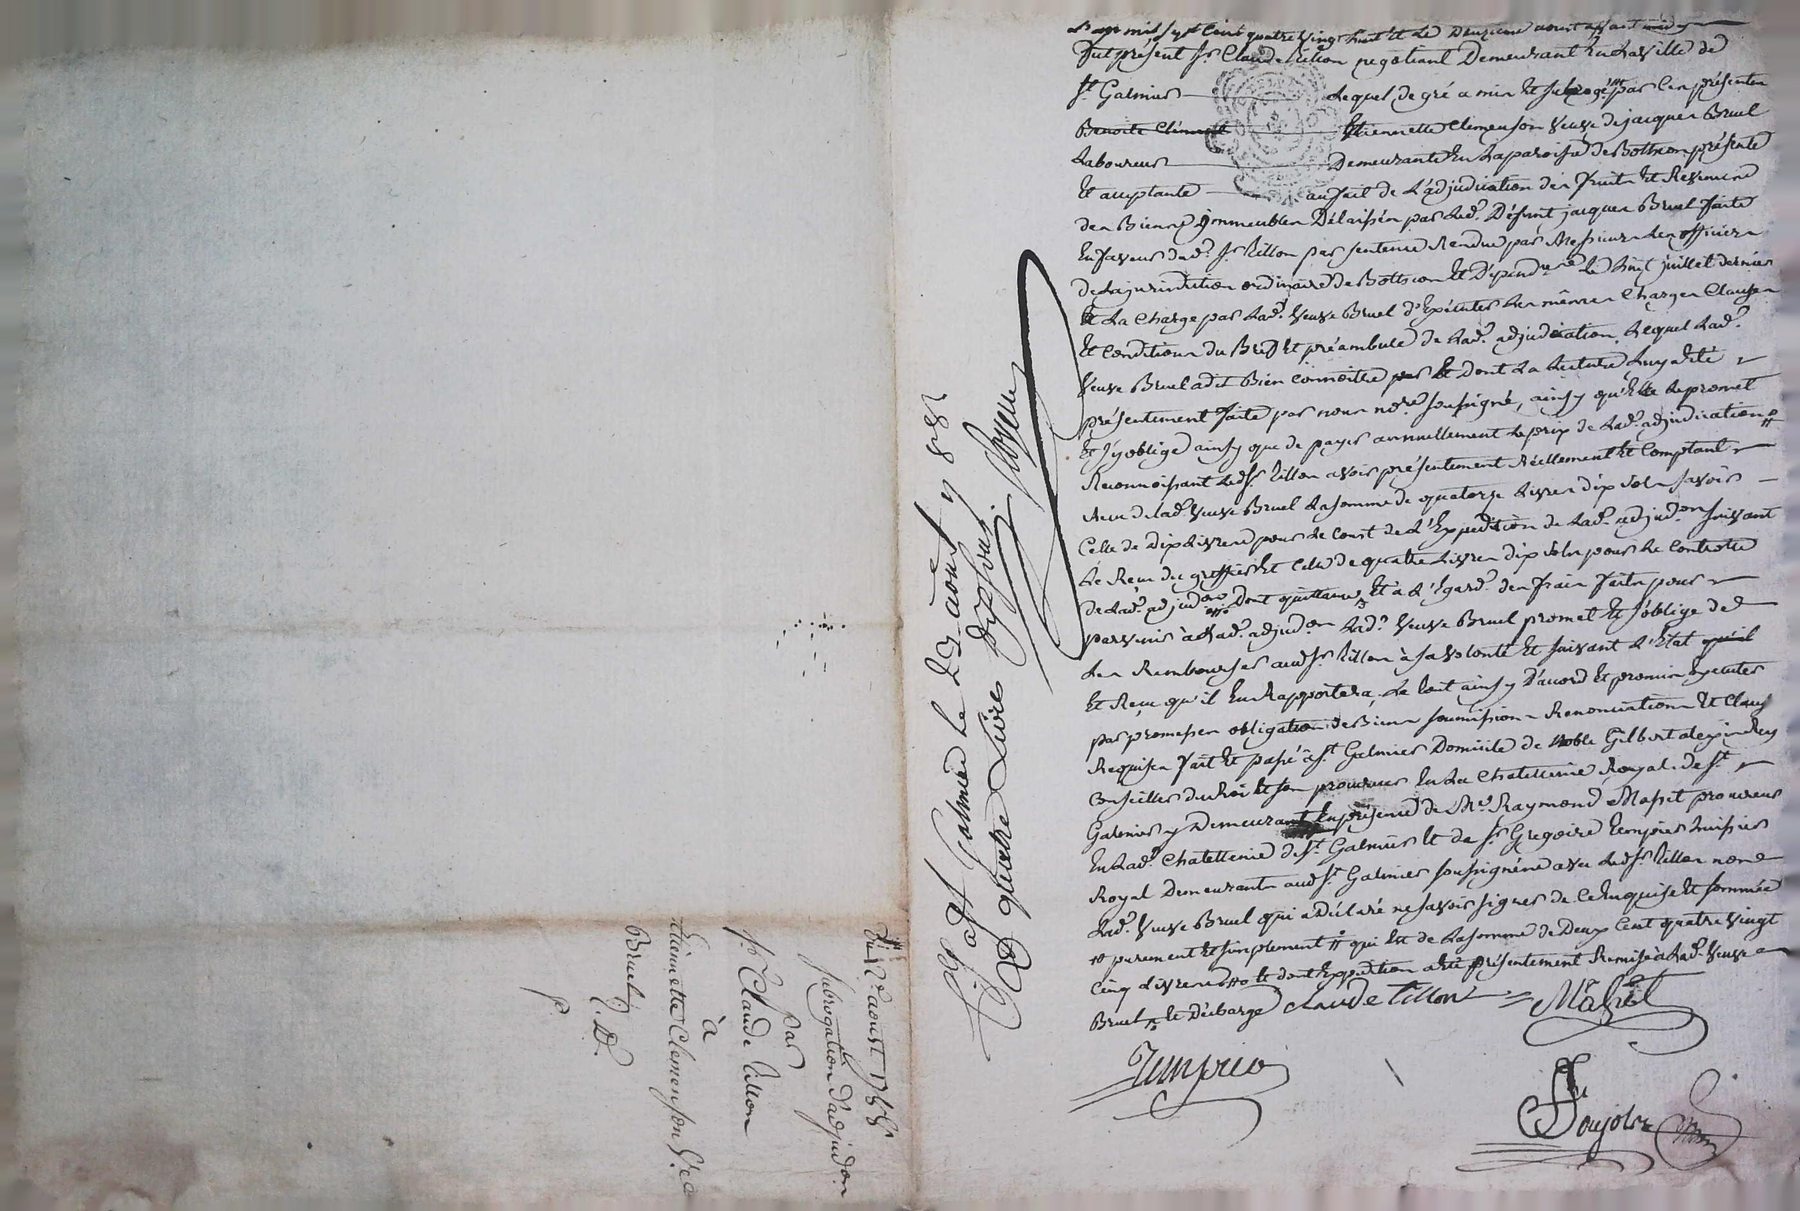 L'an mil sept cent quatre vingt huit et le douzieme aout avant midy
fut présent Sr. Claude Tillon negotiant Demeurant En la ville de
St. Galmier Lequel de gré a mis et subrogé par Ces présentes
Benoite Clémen Etiennette Clemenson veuve de jacques Bruel
Laboureur Demeurante En la paroisse de Botheon présente
Et acceptante au fait de L'adjudication des fruits Et Revenus
des Biens immeubles Délaissés par led. Défunt jacques Bruel faite
En faveur dud. Sr. Tillon par sentence Rendue par Messieurs Les officiers
de La jurisdiction ordinaire de Botheon Et Dépendces Le vingt juillet dernier
à La Charge par Lad. veuve Bruel d'Exécuter Les mêmes Charges Clauses
Et Conditions du Bref Et préambule de Lad. adjudication, Lequel Lad.
veuve Bruel a dit Bien Connoitre Et Dont La Lecture Luy a été
présentement faite par nous nore. soussigné, ainsy qu'Elle Le promet
Et s'y oblige ainsy que de payer annuellement Le prix de Lad. adjudication #
Reconnoissant Led. Sr. Tillon avoir présentement Réellement Et Comptant
Reçu de Lad. veuve Bruel La somme de quatorze Livres dix sols savoir
Celle de Dix Livres pour Le Cout de L'Expedition de Lad. adjudon. suivant
Le Reçu du greffier Et Celle de quatre Livres dix sols pour Le Controlle
de Lad. adjudon. Dont quittance, Et a L'Egard des frais faits pour
parvenir à Lad. adjudon. Lad. veuve Bruel promet Et s'oblige de
Les Rembourser aud. Sr. Tillon à sa volonté Et suivant L'Etat
Et Reçu qu'il En Rapportera, Le tout ainsy D'accord Et promis Executer
par promesses obligation de Biens soumissions Renonciations Et Clauses
Requises fait Et passé à St. Galmier Domicile de Noble Gilbert
Conseiller du Roi Et son procureur En La Chatellenie Royale de St.
Galmier y Demeurant En présence de Me. Raymond Massit procureur
En Lad. Chatellenie de St. Galmier Et de Sr. Gregoire huissier
Royal Demeurants aud. St. Galmier soussignés avec Led. Sr. Tillon non
Lad. veuve Bruel qui a Déclaré ne savoir signer de Ce Enquise Et sommée
purement Et simplement # qui Est de La somme de Deux Cent quatre vingt
Cinq Livres Et dont Expedition a été présentement Remise à Lad. veuve
Bruel Et Décharge Claude Tillon
Ctlé à St Galmier le 23 août 1788
R quatre Livres dix sols
Du 12e. aoust 1788
subrogation d'adjudon.
par
Sr. Claude Tillon
à
Etiennette Clemenson Ve.
Bruel